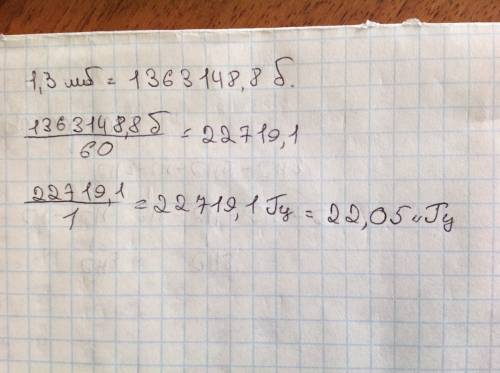 1,3 мб = 1363148,8 б.
1363148,8 б / 60 = 22719,1
22719,1 / 1 = 22719,1 Гц = 22,05 кГц